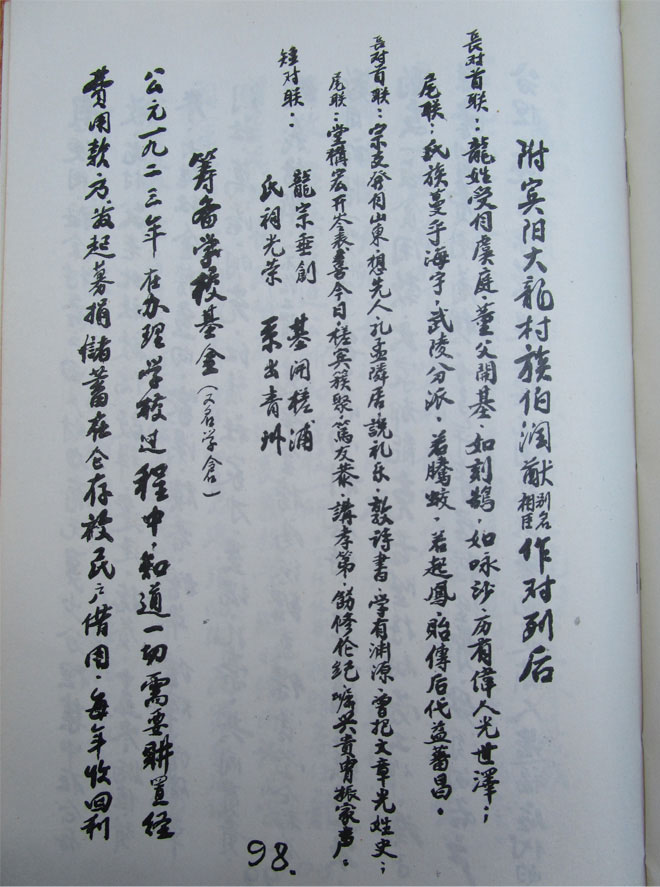 附宾阳大龍村族伯润猷别名相臣作对列后
長对首联：龍姓受自虞庭，董父開基，如刻鵠，如咏沙，历有偉人光世澤；
尾联：氏族蔓乎海宇，武陵分派，若騰蛟，若起鳳，貽傳后代益蕃昌。
長对首联：宗支發自山東，想先人礼孟隣居，説礼乐，敦詩書，学有渊源，曾把文章光姓史；
尾联：堂構宏开岑表，喜今日槎宾簇聚，篤友恭，講孝第，飭修伦纪，嘱與貴胄振家声。
短对联：
龍宗垂創 基開槎浦
氏祠光荣 系出青州
筹备学校基金（又名学倉）
公元一九二三年在办理学校过程中，知道一切需要購置经
費用款方，发起募捐儲蓄在仓存放民户借用，每年收回利
98.